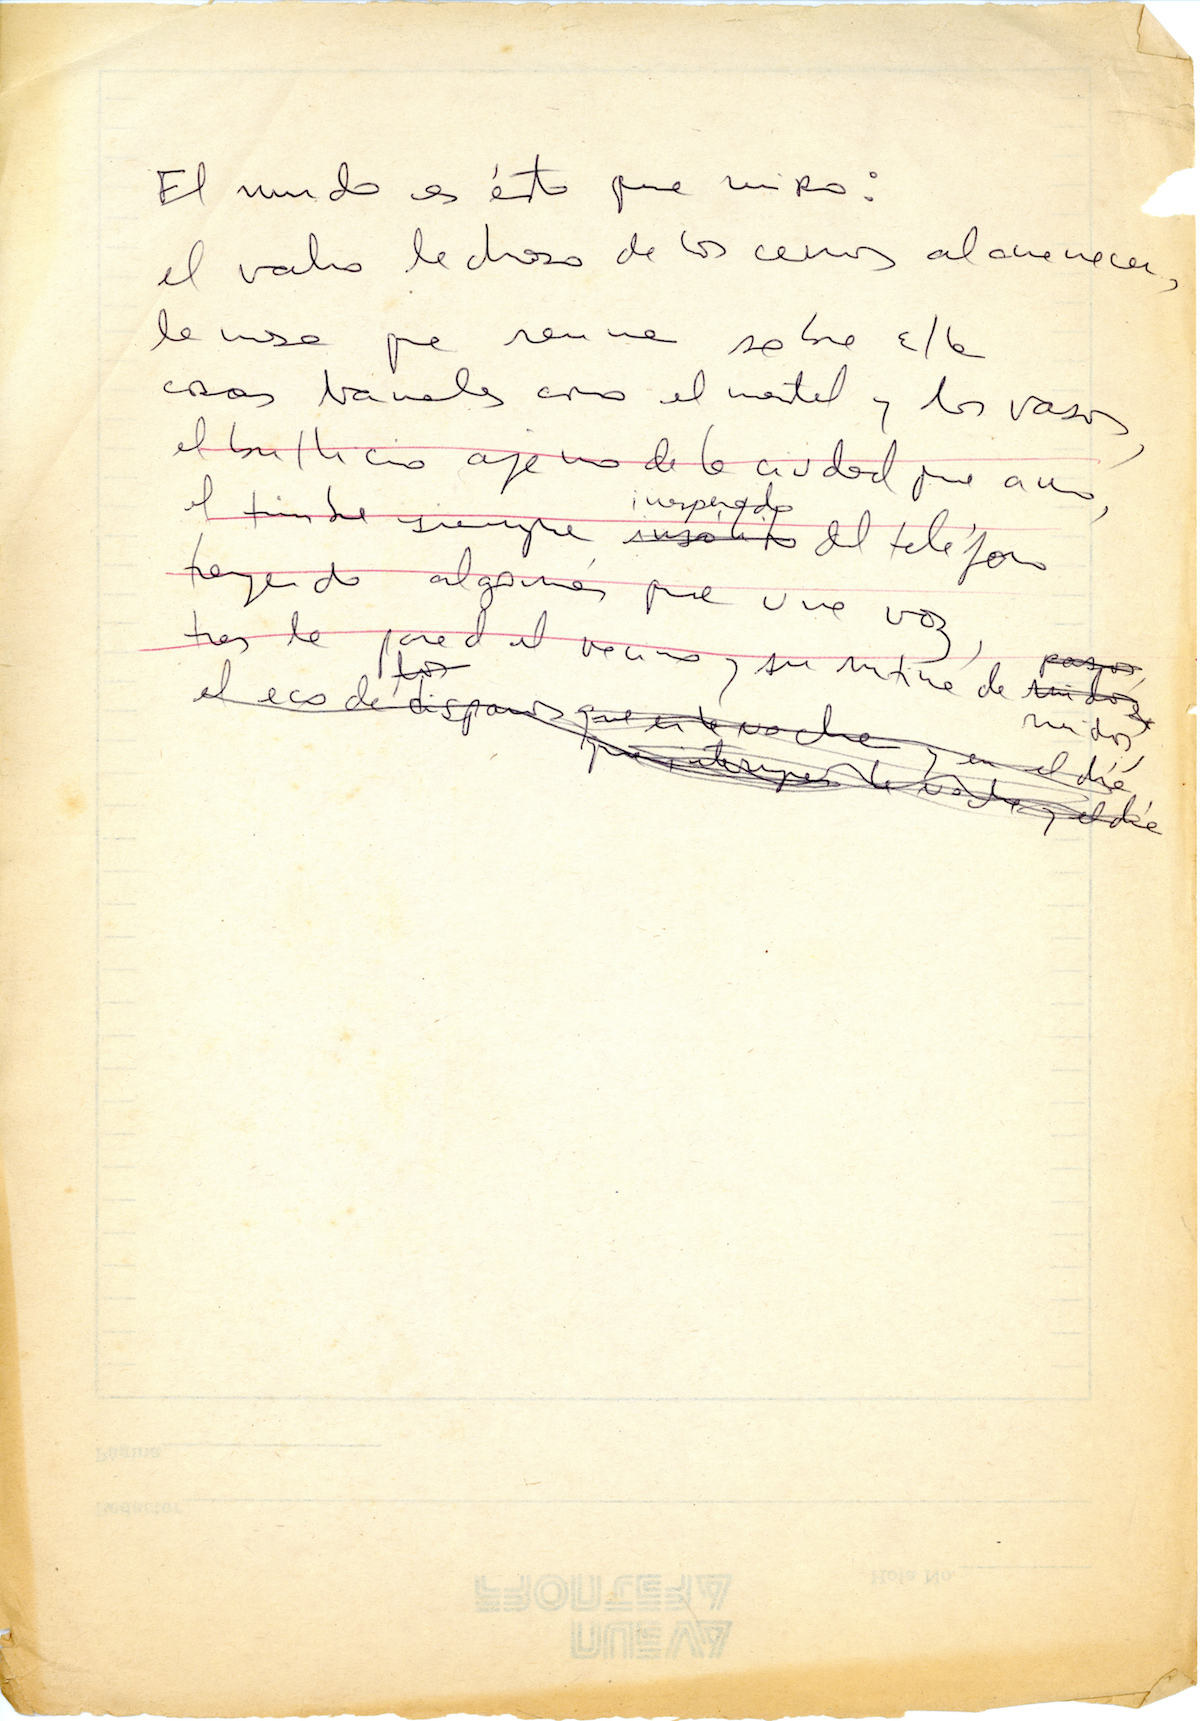 El mundo es ésto que miro:
el vaho lechoso de los cerros al amanecer,
la mesa que reune sobre ella
cosas banales como el mantel y los vasos,
el bullicio ajeno de la ciudad que amo,
inesperado
el timbre siempre insólito del teléfono
trayendo algo más que una voz,
pasos,
tras la pared el vecino y su rutina de ruidos
ruidos,
los
el eco de disparos que en la noche y en el día
que interrumpen la noche y el día
Página
Redactor
Nota No.
FRONTERA
NUEVA